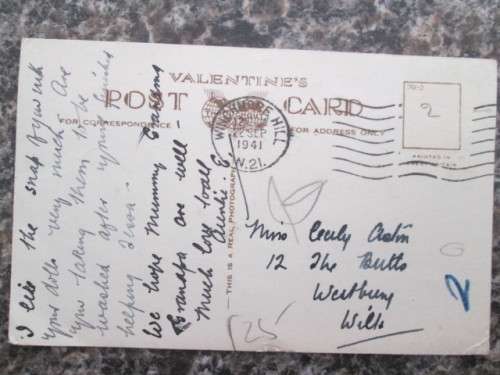 VALENTINE'S
POST CARD
FOR CORRESPONDENCE
FOR ADDRESS ONLY
WINCHMORE HILL
22 SEP
1941
N.21.
PRINTED IN
THIS IS A REAL PHOTOGRAPH
I like the snap of you with
your dolls very much. Are
you taking them to be
washed after you finish
helping
We hope Mummy
Grandpa are well
Much love to all
Auntie E
Miss Cecily
12 The Butts
Westbury
Wilts
2
2
25